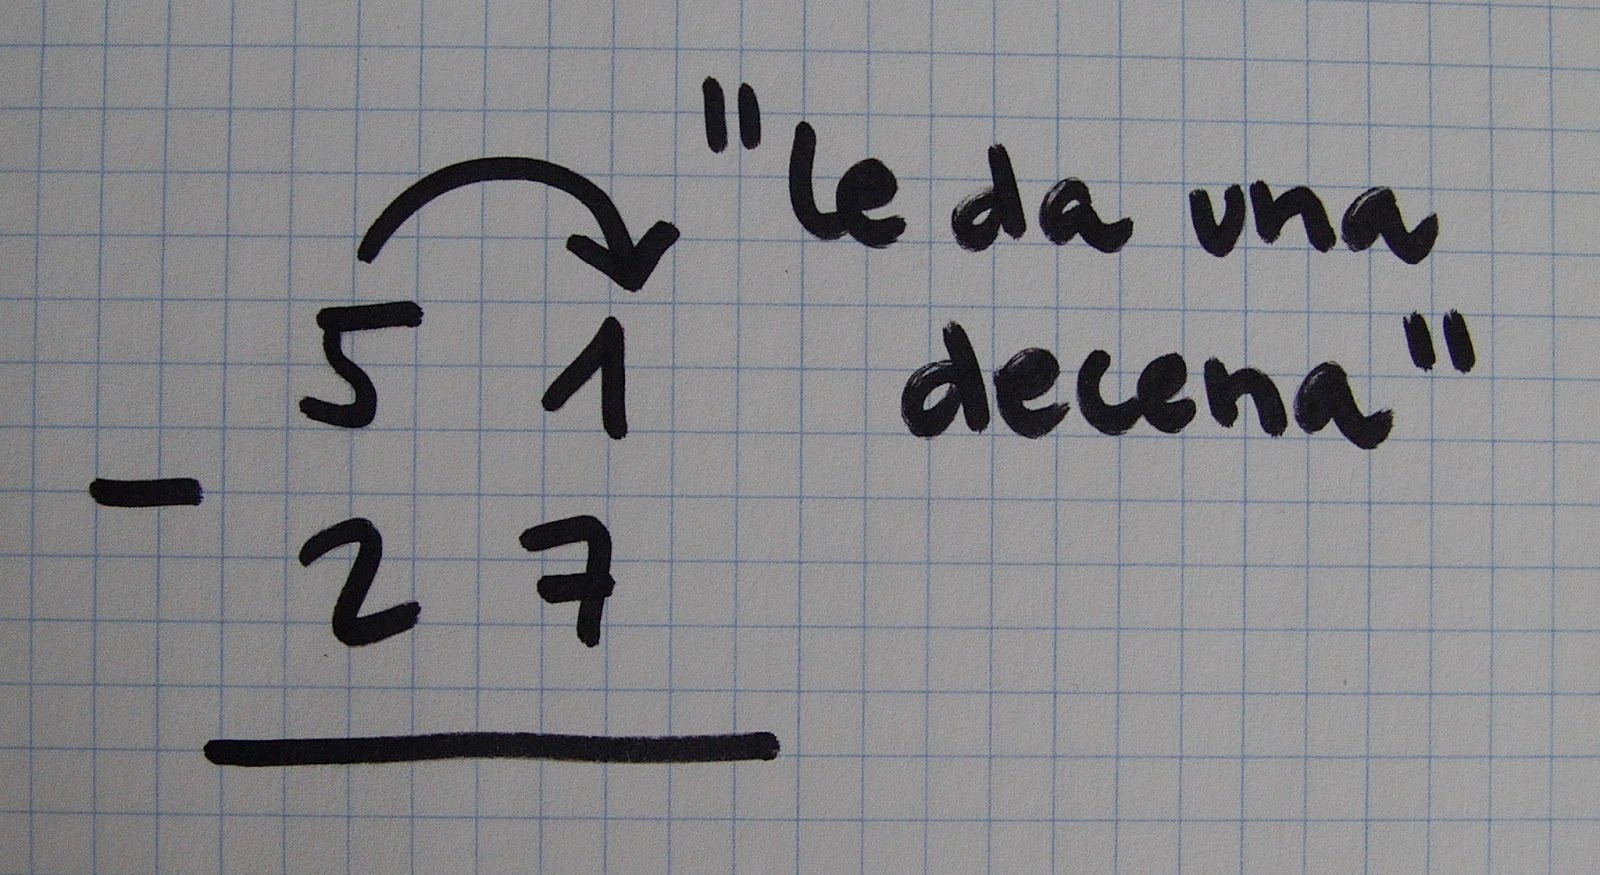 "le da una
decena"
5 1
-
2 7